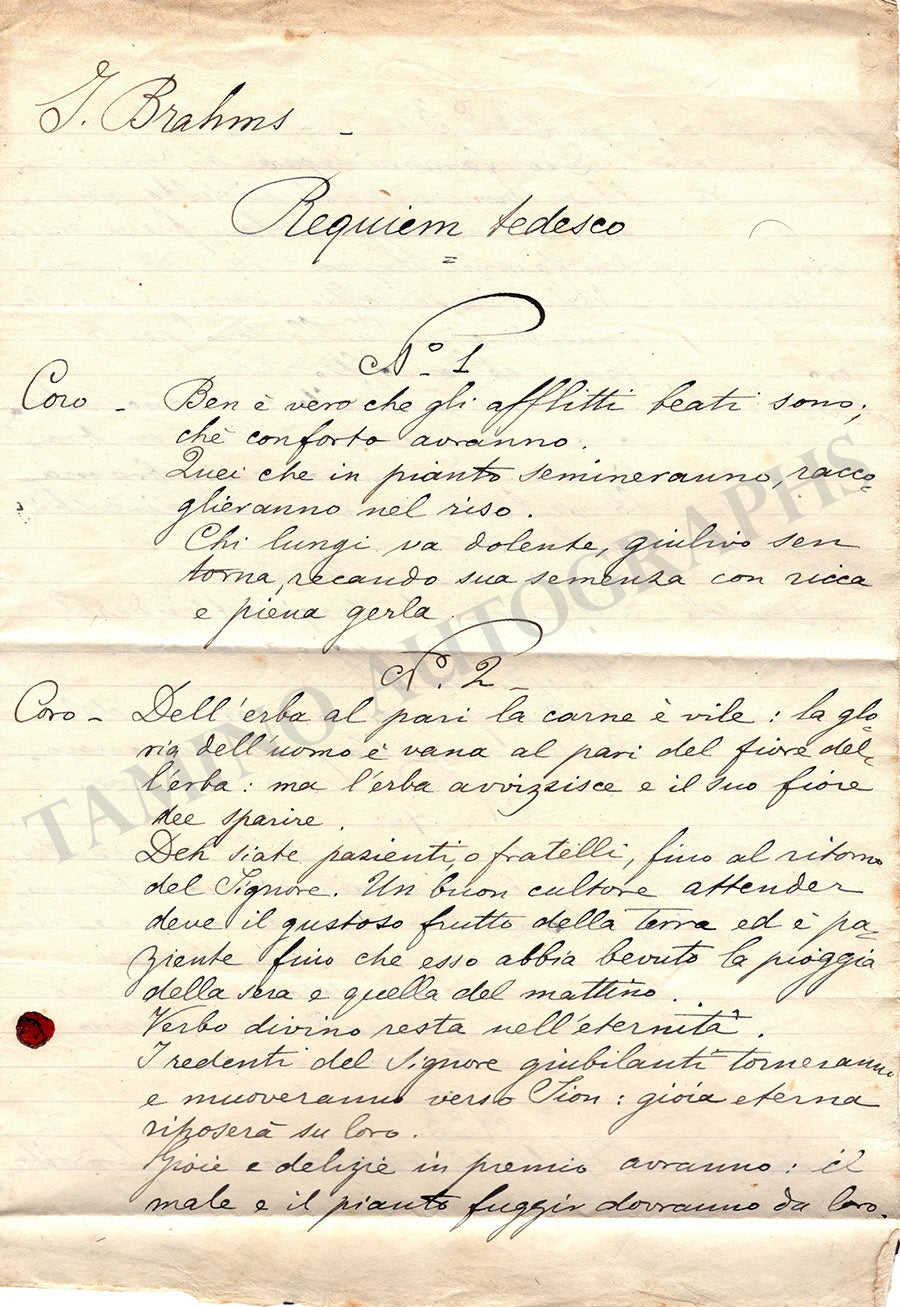 J. Brahms -
Requiem tedesco
=
No. 1
Coro - Ben è vero che gli afflitti beati sono;
chè conforto avranno.
Quei che in pianto semineranno, racco=
glieranno nel riso.
Chi lungi va dolente, giulivo sen
torna, recando sua semenza con ricca
e piena gerla.
N. 2
Coro - Dell'erba al pari la carne è vile: la glo=
ria dell'uomo è vana al pari del fiore del=
l'erba: ma l'erba avvizzisce e il suo fiore
dee sparire.
Deh siate pazienti, o fratelli, fino al ritorno
del Signore. Un buon cultore attender
deve il gustoso frutto della terra ed è pa=
ziente fino che esso abbia bevuto la pioggia
della sera e quella del mattino.
Verbo divino resta nell'eternità.
I redenti del Signore giubilanti torneranno
e muoveranno verso Sion: gioia eterna
riposerà su loro.
Gioie e delizie in premio avranno: il
male e il pianto fuggir dovranno da loro.
TAMINO AUTOGRAPHS